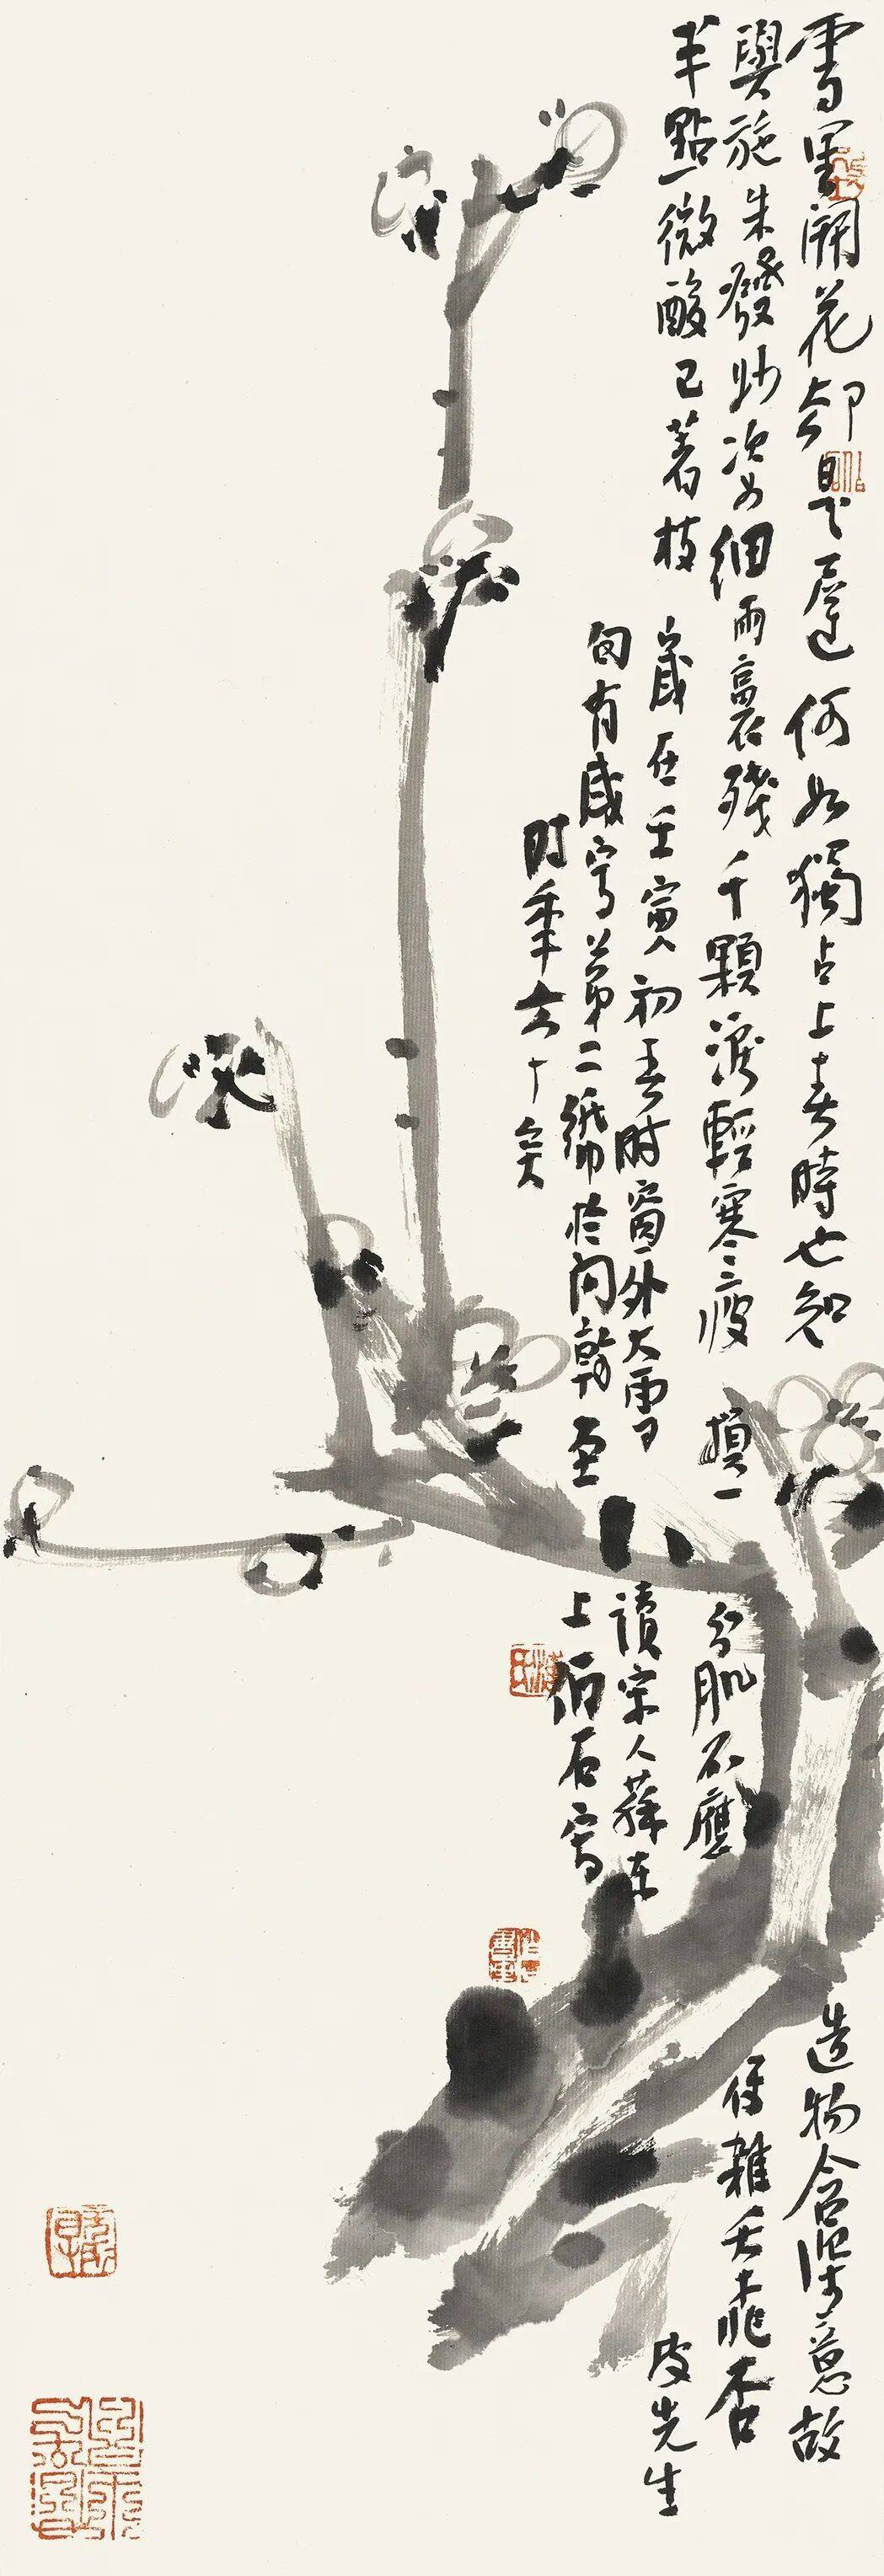 雪里開花却是遲何如獨占上春時也知造物含深意故
與施朱發妙姿細雨裛殘千顆淚輕寒瘦損一分肌不應便雜夭桃杏
半點微酸已著枝
歲在壬寅初春时窗外大雪讀宋人蘇東坡先生
句有感寫第二紙於问乾上伯石寫
时年六十矣